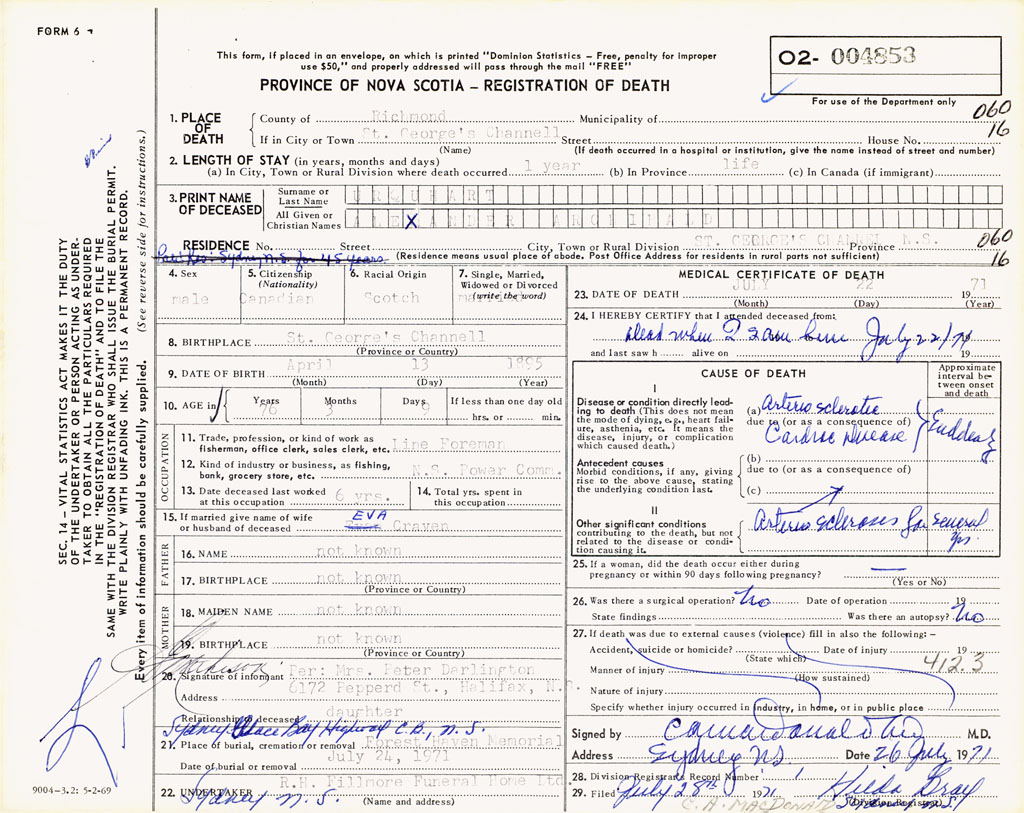 FORM 6
This form, if placed in an envelope, on which is printed "Dominion Statistics – Free, penalty for improper
use $50," and properly addressed will pass through the mail "FREE"
PROVINCE OF NOVA SCOTIA – REGISTRATION OF DEATH
O2- 004853
For use of the Department only
060
16
1. PLACE OF DEATH
County of Richmond Municipality of
If in City or Town St. George's Channell Street House No.
(Name) (If death occurred in a hospital or institution, give the name instead of street and number)
2. LENGTH OF STAY (in years, months and days)
(a) In City, Town or Rural Division where death occurred 1 year (b) In Province life (c) In Canada (if immigrant)
3. PRINT NAME OF DECEASED
Surname or Last Name URQUHART
All Given or Christian Names ALEXANDER ARCHIBALD
RESIDENCE No. Street City, Town or Rural Division ST. GEORGE'S CHANNEL Province N.S.
060
16
Sydney, N.S. for 45 years (Residence means usual place of abode. Post Office Address for residents in rural parts not sufficient)
4. Sex
male
5. Citizenship (Nationality)
Canadian
6. Racial Origin
Scotch
7. Single, Married, Widowed or Divorced (write the word)
married
8. BIRTHPLACE St. George's Channell
(Province or Country)
9. DATE OF BIRTH April 13 1895
(Month) (Day) (Year)
10. AGE in Years Months Days If less than one day old
76 3 9 hrs. or min.
OCCUPATION
11. Trade, profession, or kind of work as fisherman, office clerk, sales clerk, etc. Line Foreman
12. Kind of industry or business, as fishing, bank, grocery store, etc. N.S. Power Comm.
13. Date deceased last worked at this occupation 6 yrs.
14. Total yrs. spent in this occupation
15. If married give name of wife or husband of deceased EVA Craven
FATHER
16. NAME not known
17. BIRTHPLACE not known
(Province or Country)
MOTHER
18. MAIDEN NAME not known
19. BIRTHPLACE not known
(Province or Country)
20. Signature of informant Per: Mrs. Peter Darlington
Address 6172 Pepperd St., Halifax, N.S.
Relationship to deceased daughter
Sydney Glace Bay Highway C.B., N.S.
21. Place of burial, cremation or removal Forest Haven Memorial
Date of burial or removal July 24, 1971
22. UNDERTAKER R.H. Fillmore Funeral Home Ltd.
Sydney N.S.
(Name and address)
MEDICAL CERTIFICATE OF DEATH
23. DATE OF DEATH JULY 22 1971
(Month) (Day) (Year)
24. I HEREBY CERTIFY that I attended deceased from:
dead when I saw him July 22/71
and last saw h alive on 19
CAUSE OF DEATH
Approximate interval between onset and death
I
Disease or condition directly leading to death (This does not mean the mode of dying, e.g., heart failure, asthenia, etc. It means the disease, injury, or complication which caused death.)
(a) Arterio sclerotic
due to (or as a consequence of)
Cardiac Disease
Suddenly
Antecedent causes
Morbid conditions, if any, giving rise to the above cause, stating the underlying condition last.
(b)
due to (or as a consequence of)
(c)
II
Other significant conditions contributing to the death, but not related to the disease or condition causing it.
Arterio scleroses for several yrs.
25. If a woman, did the death occur either during pregnancy or within 90 days following pregnancy? —
(Yes or No)
26. Was there a surgical operation? No Date of operation 19
State findings Was there an autopsy? No
27. If death was due to external causes (violence) fill in also the following: –
Accident, suicide or homicide? Date of injury 19
(State which)
412.3
Manner of injury
(How sustained)
Nature of injury
Specify whether injury occurred in industry, in home, or in public place
Signed by M.D.
Address Sydney NS Date 26 July 1971
28. Division Registrar's Record Number
29. Filed July 28th 1971 Hilda Gray
(Division Registrar)
C. A. MACDONALD
SEC. 14 – VITAL STATISTICS ACT MAKES IT THE DUTY
OF THE UNDERTAKER OR PERSON ACTING AS UNDERTAKER
TO OBTAIN ALL THE PARTICULARS REQUIRED
IN THE "REGISTRATION OF DEATH" AND TO FILE THE
SAME WITH THE DIVISION REGISTRAR WHO SHALL ISSUE THE BURIAL PERMIT.
WRITE PLAINLY WITH UNFADING INK. THIS IS A PERMANENT RECORD.
Every item of information should be carefully supplied. (See reverse side for instructions.)
9004-3.2: 5-2-69